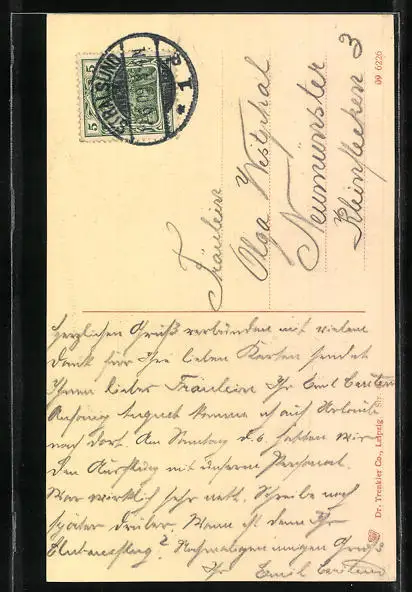 STRALSUND
P 1 *
5 5
Fräulein
Olga Westphal
Neumünster
Kleinflecken 3
09 6226
Herzlichen Gruß verbunden mit vielem
Dank für Ihre lieben Karten sendet
Ihnen liebes Fräulein Ihr Emil
Anfang August komme ich auf Urlaub
nach dort. Am Sonntag d. 6. hatten wir
den Ausflug mit unserm Personal.
War wirklich sehr nett. Schreibe noch
später drüber. Wann ist denn Ihr
? Nochmaligen innigen Gruß
Ihr Emil
Dr. Trenkler Co., Leipzig